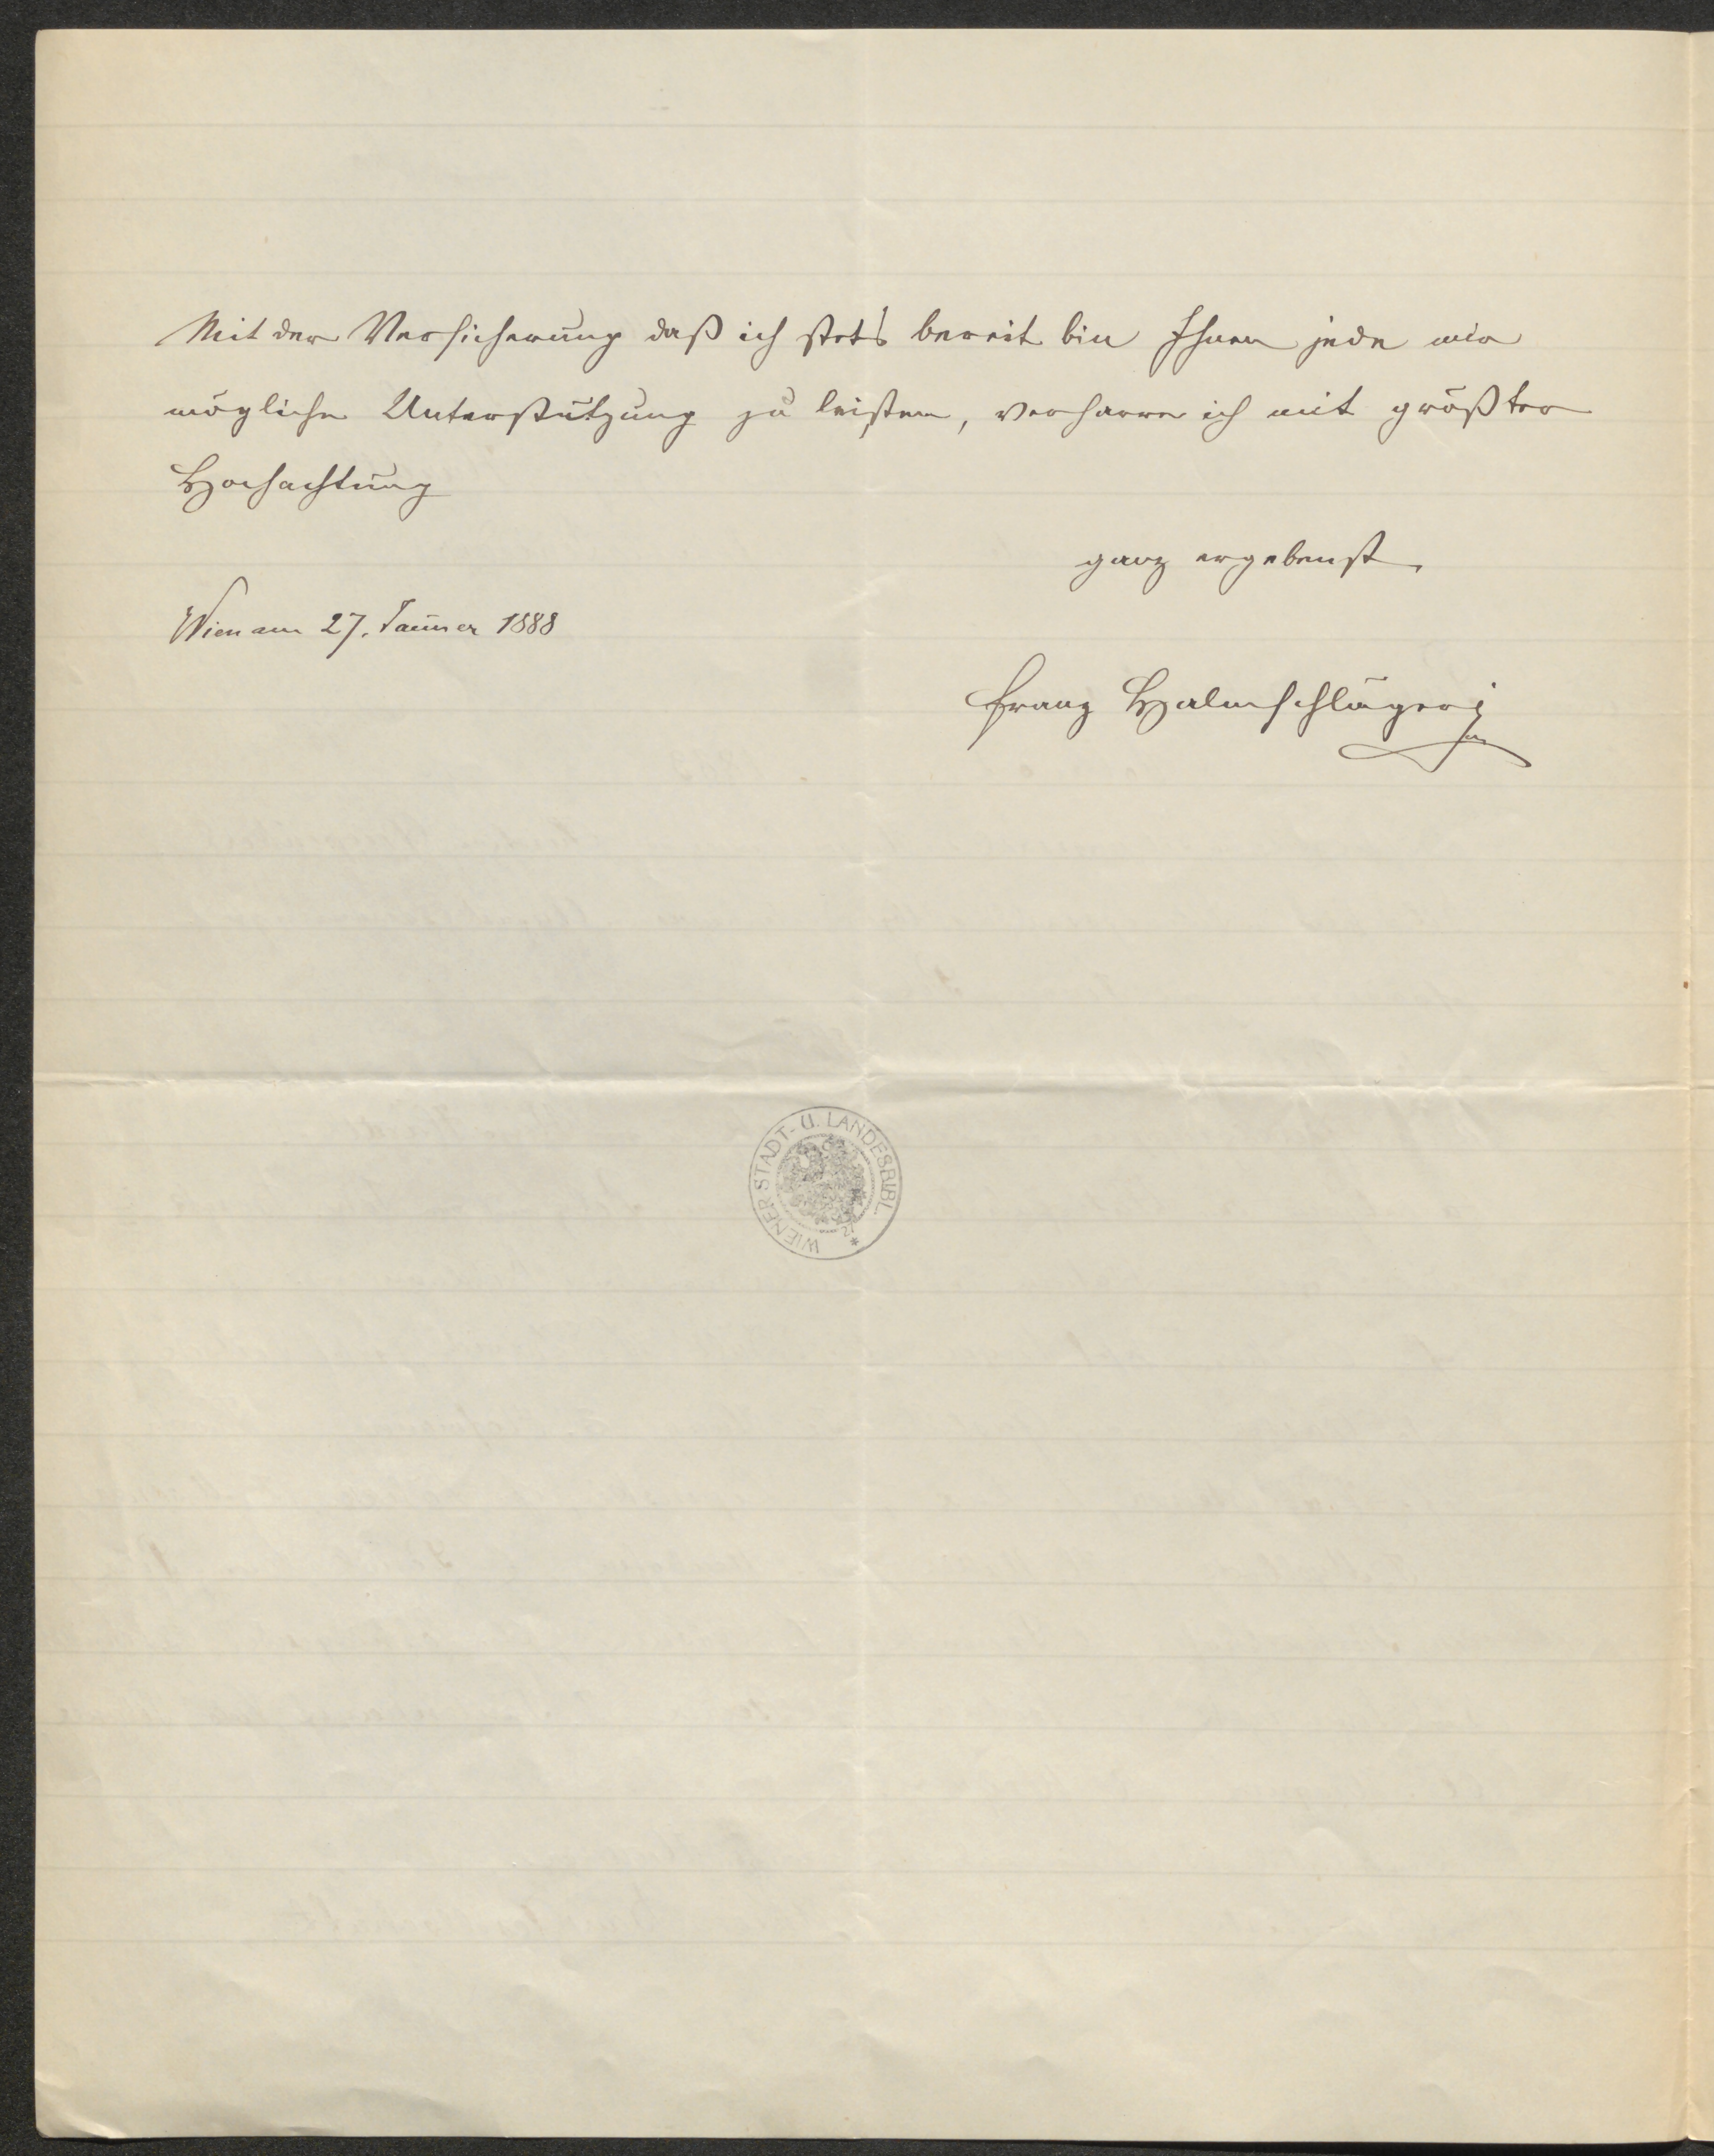 Mit der Versicherung daß ich stets bereit bin Ihnen jede mir
mögliche Unterstützung zu leisten, verharre ich mit größter
Hochachtung
ganz ergebenst
Wien am 27. Jänner 1888
Franz Halmschläger
WIENER STADT- U. LANDESBIBL.